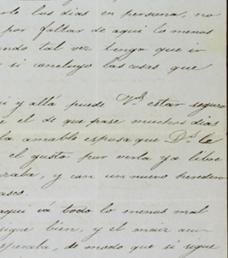 los dias en persona, no
por faltar de aqui lo menos
ando tal vez tenga que ir
r si concluyo las cosas que
i y allá puede Vd. estar seguro
el de que pase muchos dias
la amable esposa que Ds. le
el gusto por verla ya
y con un nuevo
aqui vá todo lo menos mal
sigue bien, y el maiz
de modo que si sigue